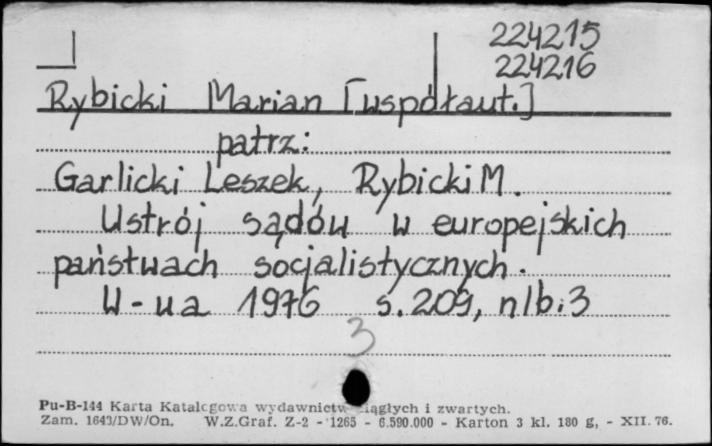 224215
224216
Rybicki Marian [współaut.]
patrz:
Garlicki Leszek, Rybicki M.
Ustrój sądów w europejskich
państwach socjalistycznych.
W-wa 1976 s. 209, nlb. 3
3
Pu-B-144 Karta Katalogowa wydawnictw ciągłych i zwartych.
Zam. 1643/DW/On. W.Z.Graf. Z-2 - 1265 - 6.590.000 - Karton 3 kl. 180 g, - XII. 76.